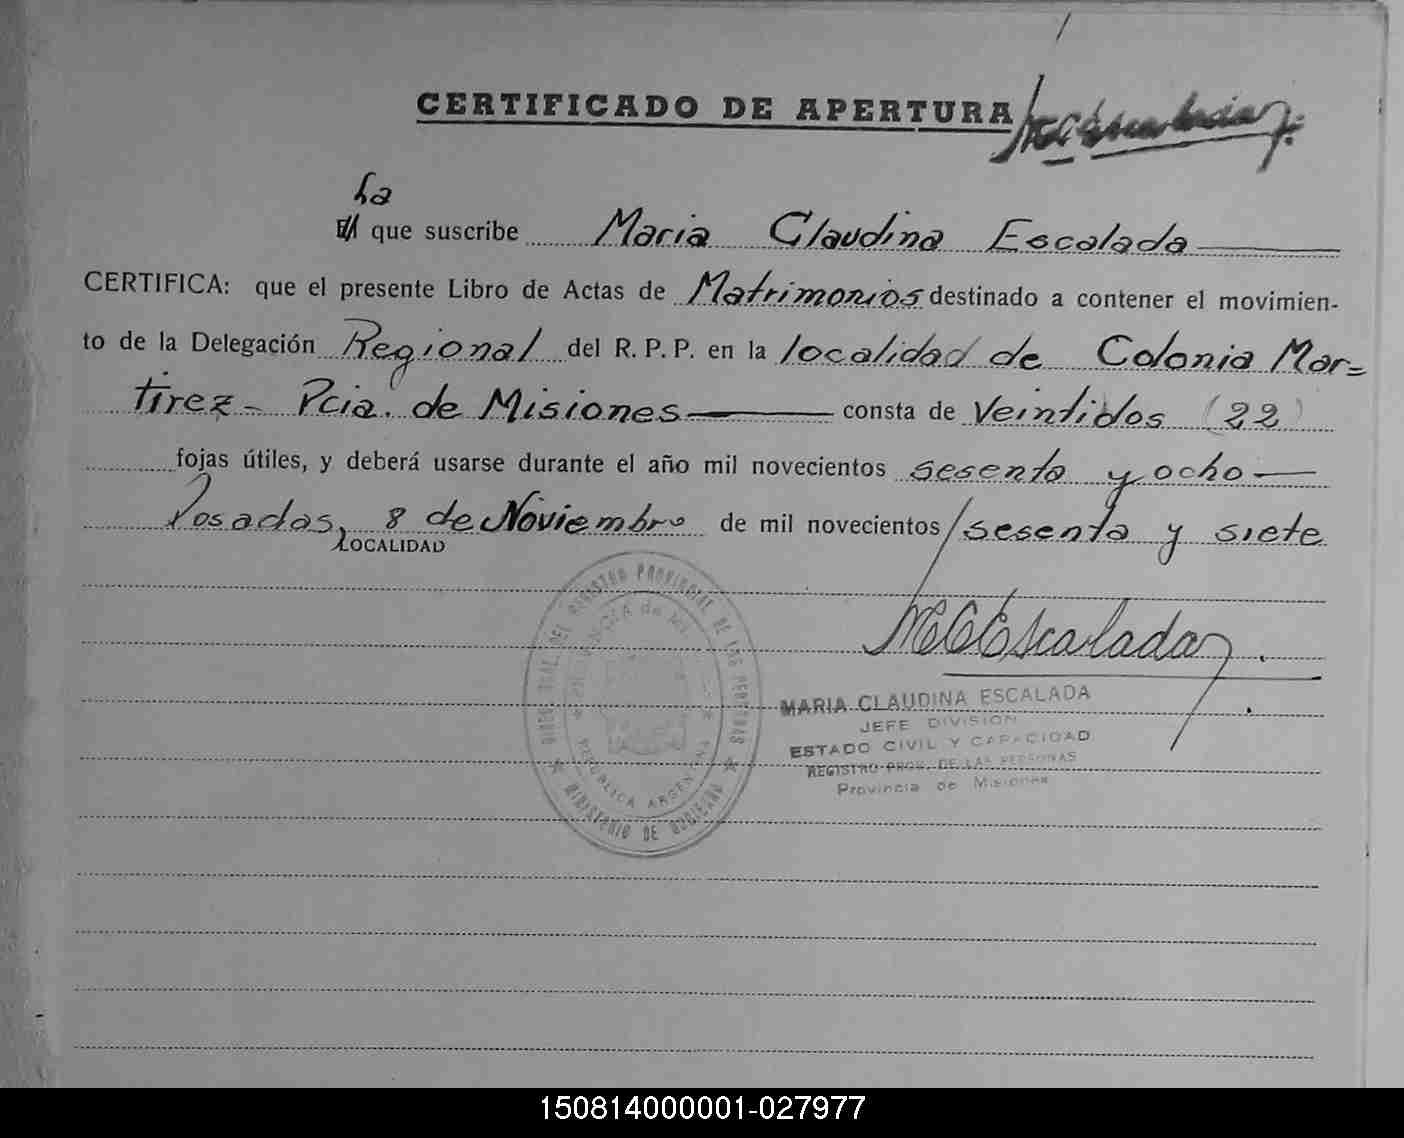 CERTIFICADO DE APERTURA
La
El que suscribe Maria Claudina Escalada
CERTIFICA: que el presente Libro de Actas de Matrimonios destinado a contener el movimien-
to de la Delegación Regional del R. P. P. en la localidad de Colonia Mar=
tirez - Pcia. de Misiones consta de Veintidos (22)
fojas útiles, y deberá usarse durante el año mil novecientos sesenta y ocho
Posadas, 8 de Noviembre de mil novecientos sesenta y siete
LOCALIDAD
MCEscalada
DEL REGISTRO PROVINCIAL DE LAS PERSONAS
MINISTERIO DE GOBIERNO
REPUBLICA ARGENTINA
MARIA CLAUDINA ESCALADA
JEFE DIVISION
ESTADO CIVIL Y CAPACIDAD
REGISTRO PROV. DE LAS PERSONAS
Provincia de Misiones
150814000001-027977